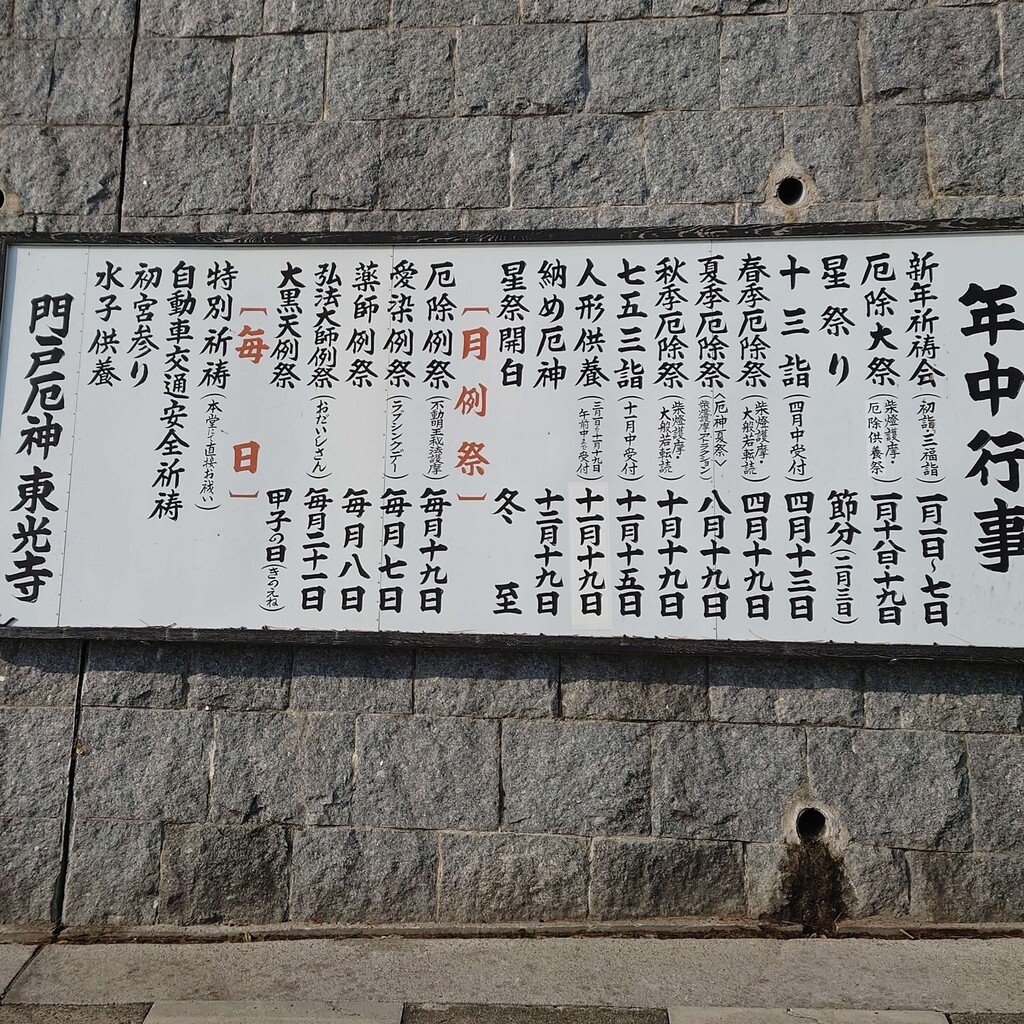 年中行事
新年祈祷会（初詣・三福詣）一月一日〜七日
厄除大祭（柴燈護摩・厄除供養祭）一月十八日・十九日
星祭り 節分（二月三日）
十三詣（四月中受付）四月十三日
春季厄除祭（柴燈護摩・大般若転読）四月十九日
夏季厄除祭〈厄神夏祭〉 八月十九日
秋季厄除祭（柴燈護摩・大般若転読）十月十九日
七五三詣（十一月中受付）十一月十五日
人形供養 十一月十九日
納め厄神 十二月十九日
星祭開白 冬至
［月例祭］
厄除例祭（不動明王秘法護摩）毎月十九日
愛染例祭（ラブシングデー）毎月七日
薬師例祭 毎月八日
弘法大師例祭（おだいしさん）毎月二十一日
大黒天例祭 甲子の日（きのえね）
［毎日］
特別祈祷（本堂にて直接お祓い）
自動車交通安全祈祷
初宮参り
水子供養
門戸厄神 東光寺